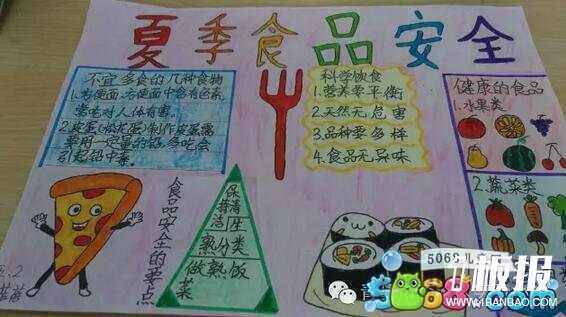 夏季食品安全
不宜多食的几种食物
1.方便面.方便面中含有色素,
常吃对人体有害。
2.皮蛋(松花蛋)制作皮蛋需
要用一定量的铅,多吃会
引起铅中毒。
科学饮食
1.营养要平衡
2.天然无危害
3.品种要多样
4.食品无异味
健康的食品
1.水果类
2.蔬菜类
食品安全的要点
保持清洁
生熟分类
做熟饭菜
5068儿
板报
5068.com
www.41BANBAO.com